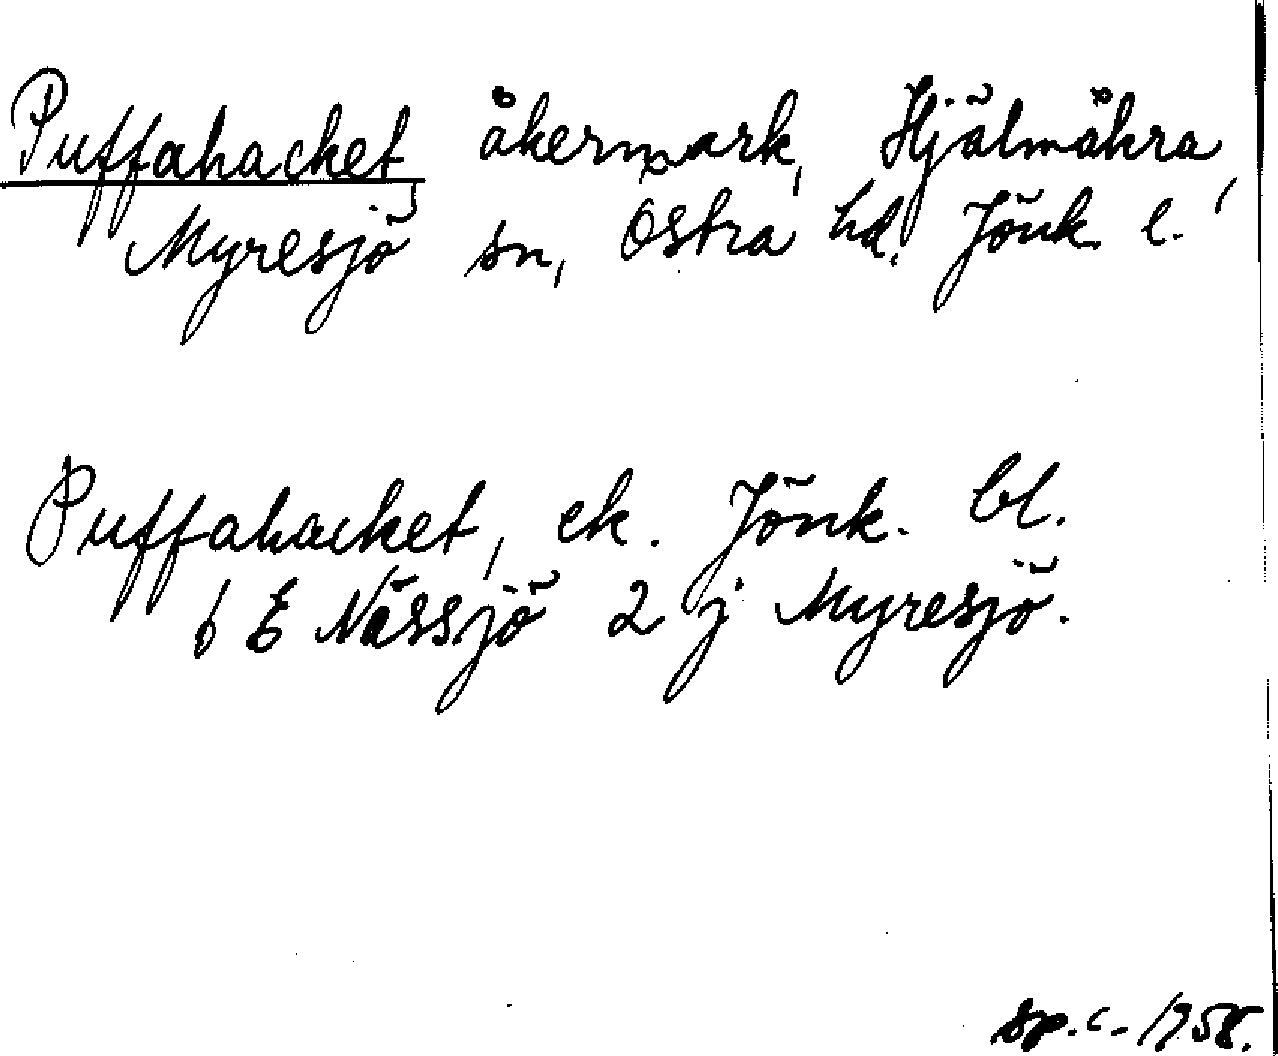 Puffahacket, åkermark, Hjälmåkra,
Myresjö sn, Östra hd, Jönk. l.
Puffahacket, ek. Jönk. bl.
6 E Nässjö 2 j Myresjö.
1958.